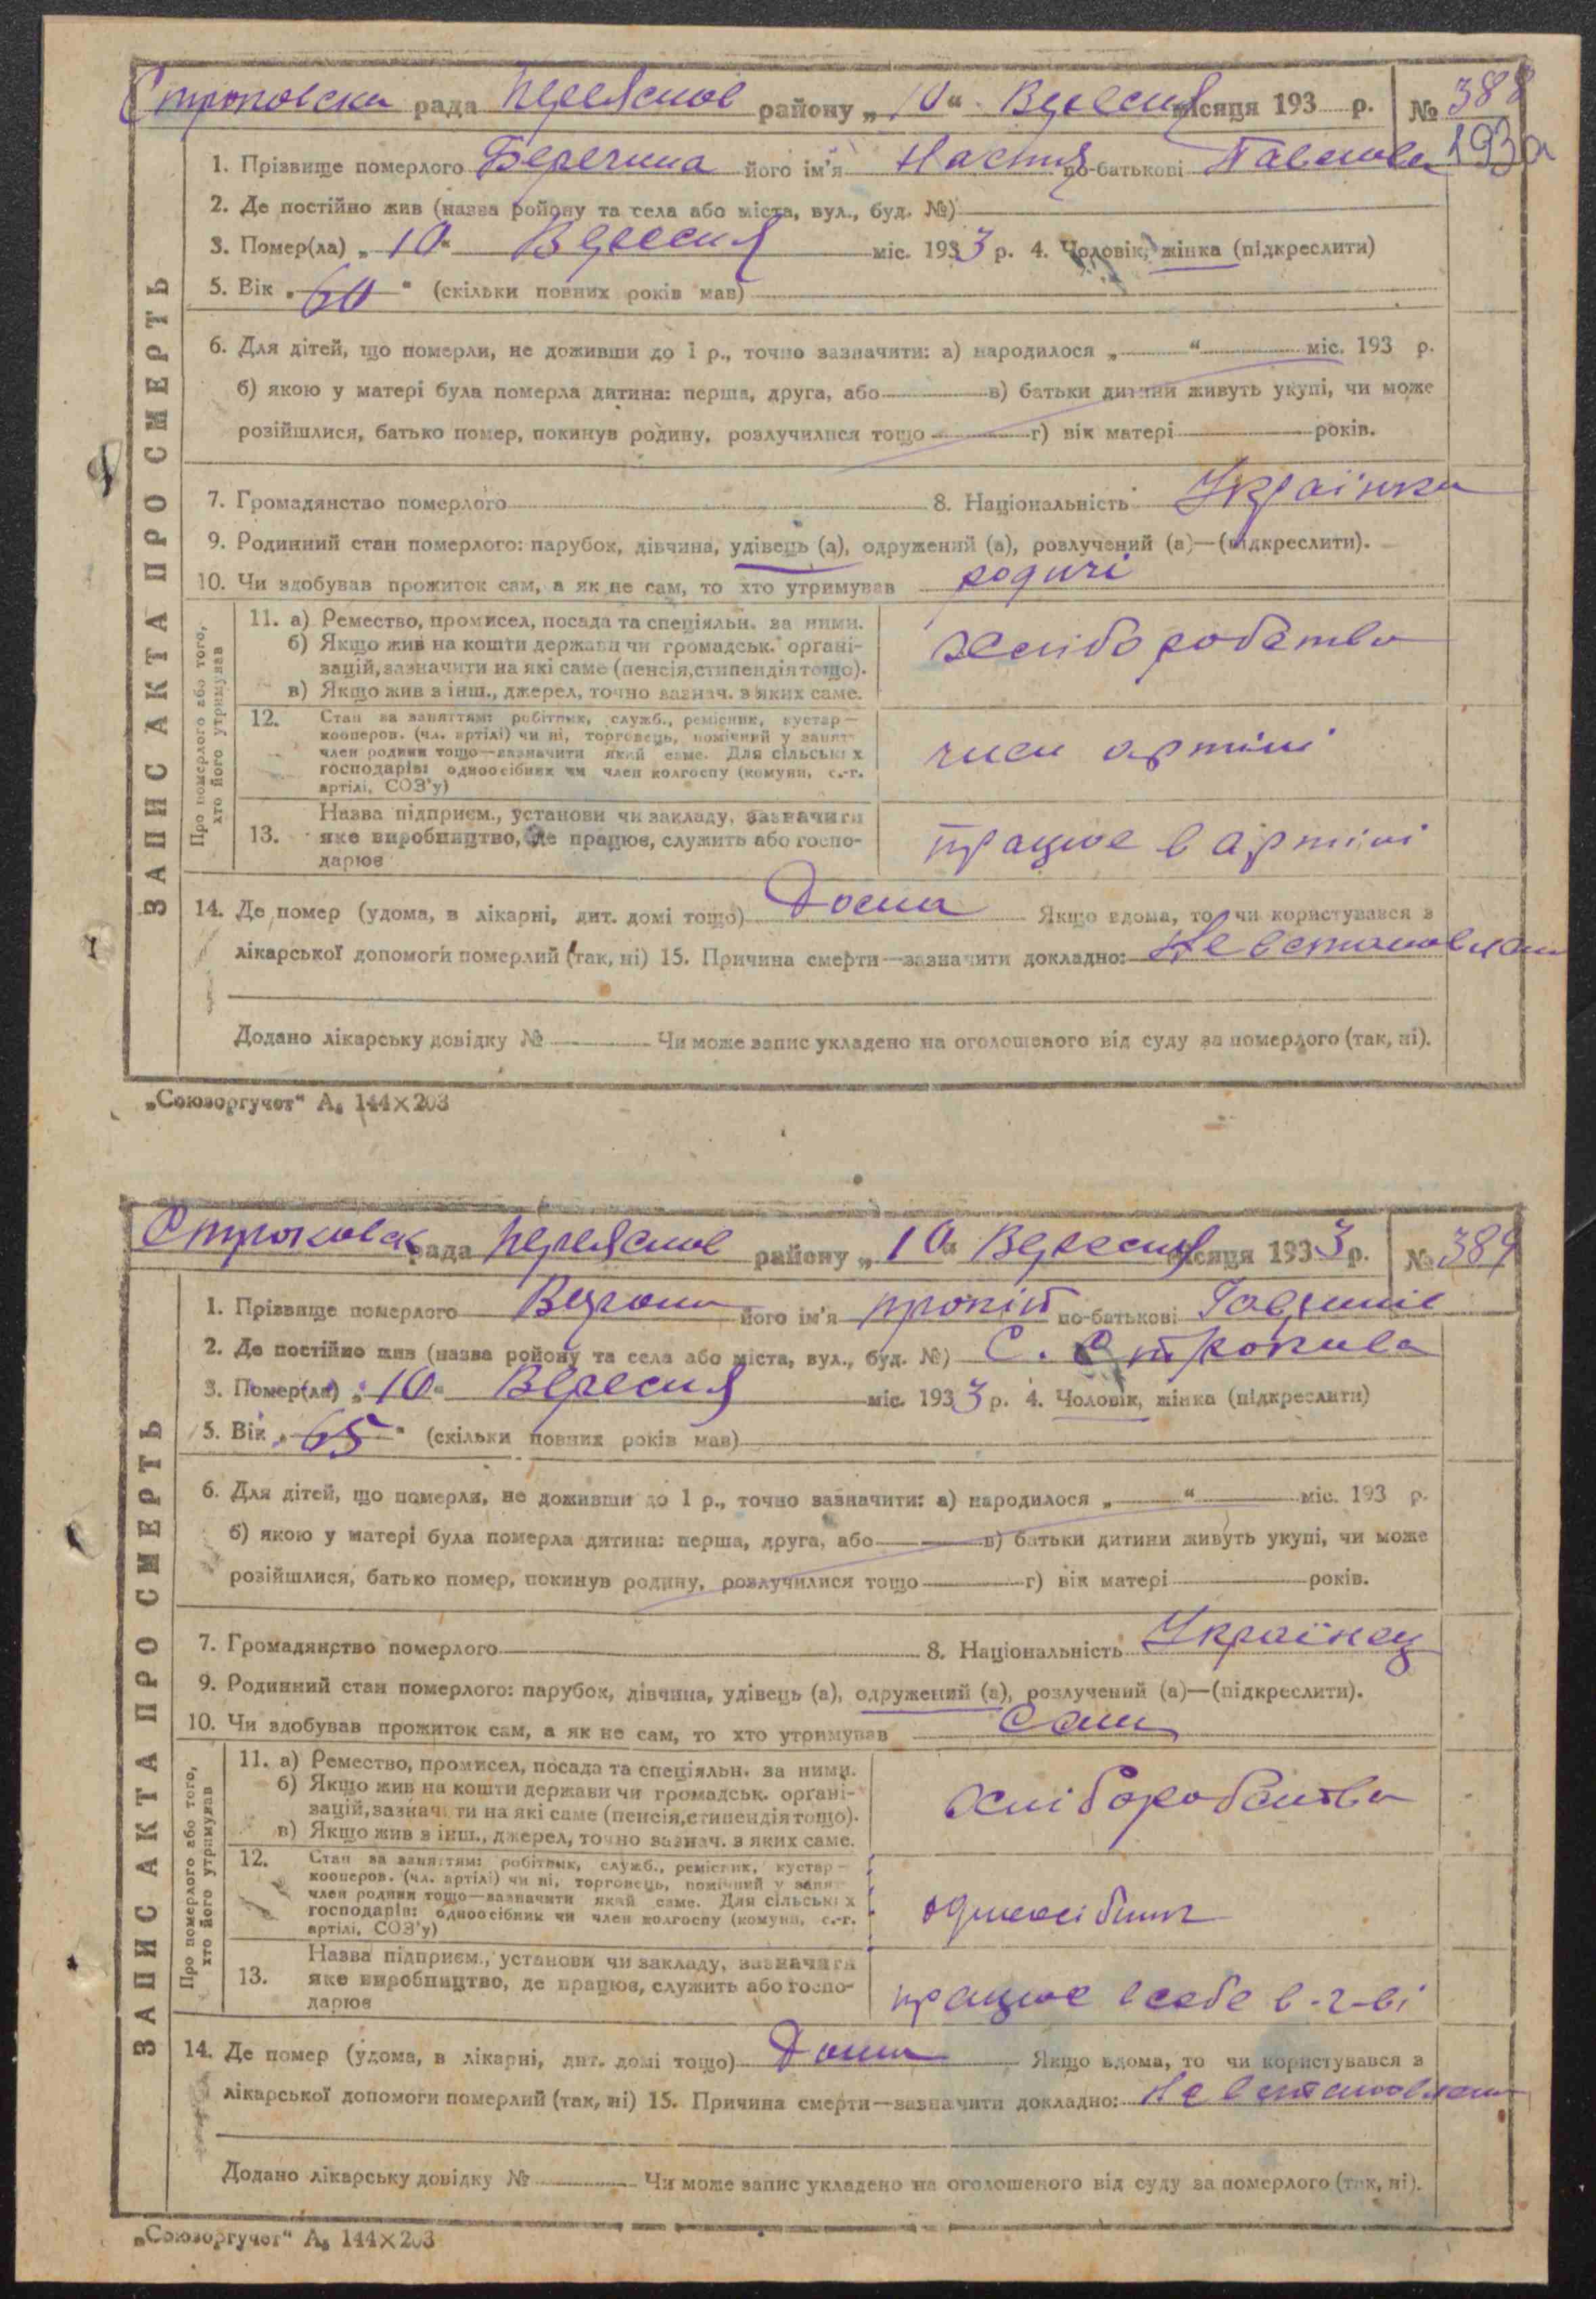 Строковска рада Переяслов району „10“ Вересня місяця 193 р. № 388
1. Прізвище померлого його ім'я Настя по-батькові Павлова 193а
2. Де постійно жив (назва ройону та села або міста, вул., буд. №)
3. Помер(ла) „10“ Вересня міс. 1933 р. 4. Чоловік, жінка (підкреслити)
5. Вік „60“ (скільки повних років мав)
6. Для дітей, що померли, не доживши до 1 р., точно зазначити: а) народилося „ “ міс. 193 р.
б) якою у матері була померла дитина: перша, друга, або в) батьки дитини живуть укупі, чи може
розійшлися, батько помер, покинув родину, розлучилися тощо г) вік матері років.
7. Громадянство померлого 8. Національність Українка
9. Родинний стан померлого: парубок, дівчина, удівець (а), одружений (а), розлучений (а)—(підкреслити).
10. Чи здобував прожиток сам, а як не сам, то хто утримував родичі
ЗАПИС АКТА ПРО СМЕРТЬ
Про померлого або того, хто його утримував
11. а) Ремество, промисел, посада та спеціяльн. за ними.
б) Якщо жив на кошти держави чи громадськ. органі-
зацій, зазначити на які саме (пенсія, стипендія тощо).
в) Якщо жив з інш., джерел, точно зазнач. з яких саме.
хліборобство
12. Стан за заняттям: робітник, служб., ремісник, кустар—
кооперов. (чл. артілі) чи ні, торговець, помічний у занят-
член родини тощо—зазначити який саме. Для сільських
господарів: одноосібник чи член колгоспу (комуни, с.-г.
артілі, СОЗ'у)
член артілі
13. Назва підприєм., установи чи закладу, зазначити
яке виробництво, де працює, служить або госпо-
дарює
працює в артілі
14. Де помер (удома, в лікарні, дит. домі тощо) Дома Якщо вдома, то чи користувався з
лікарської допомоги померлий (так, ні) 15. Причина смерти—зазначити докладно: Не встановлена
Додано лікарську довідку № Чи може запис укладено на оголошеного від суду за померлого (так, ні).
„Союзоргучет“ А₅ 144×203
Строковск рада Переяслов району „10“ Вересня місяця 1933 р. № 389
1. Прізвище померлого його ім'я Прокіп по-батькові
2. Де постійно жив (назва ройону та села або міста, вул., буд. №) С. Строкова
3. Помер(ла) „10“ Вересня міс. 1933 р. 4. Чоловік, жінка (підкреслити)
5. Вік „65“ (скільки повних років мав)
6. Для дітей, що померли, не доживши до 1 р., точно зазначити: а) народилося „ “ міс. 193 р.
б) якою у матері була померла дитина: перша, друга, або в) батьки дитини живуть укупі, чи може
розійшлися, батько помер, покинув родину, розлучилися тощо г) вік матері років.
7. Громадянство померлого 8. Національність Українец
9. Родинний стан померлого: парубок, дівчина, удівець (а), одружений (а), розлучений (а)—(підкреслити).
10. Чи здобував прожиток сам, а як не сам, то хто утримував Сам
ЗАПИС АКТА ПРО СМЕРТЬ
Про померлого або того, хто його утримував
11. а) Ремество, промисел, посада та спеціяльн. за ними.
б) Якщо жив на кошти держави чи громадськ. органі-
зацій, зазначити на які саме (пенсія, стипендія тощо).
в) Якщо жив з інш., джерел, точно зазнач. з яких саме.
хліборобство
12. Стан за заняттям: робітник, служб., ремісник, кустар—
кооперов. (чл. артілі) чи ні, торговець, помічний у занят-
член родини тощо—зазначити який саме. Для сільських
господарів: одноосібник чи член колгоспу (комуни, с.-г.
артілі, СОЗ'у)
одноосібник
13. Назва підприєм., установи чи закладу, зазначити
яке виробництво, де працює, служить або госпо-
дарює
працює в себе в-г-ві
14. Де помер (удома, в лікарні, дит. домі тощо) Дома Якщо вдома, то чи користувався з
лікарської допомоги померлий (так, ні) 15. Причина смерти—зазначити докладно: Не встановлена
Додано лікарську довідку № Чи може запис укладено на оголошеного від суду за померлого (так, ні).
„Союзоргучет“ А₅ 144×203